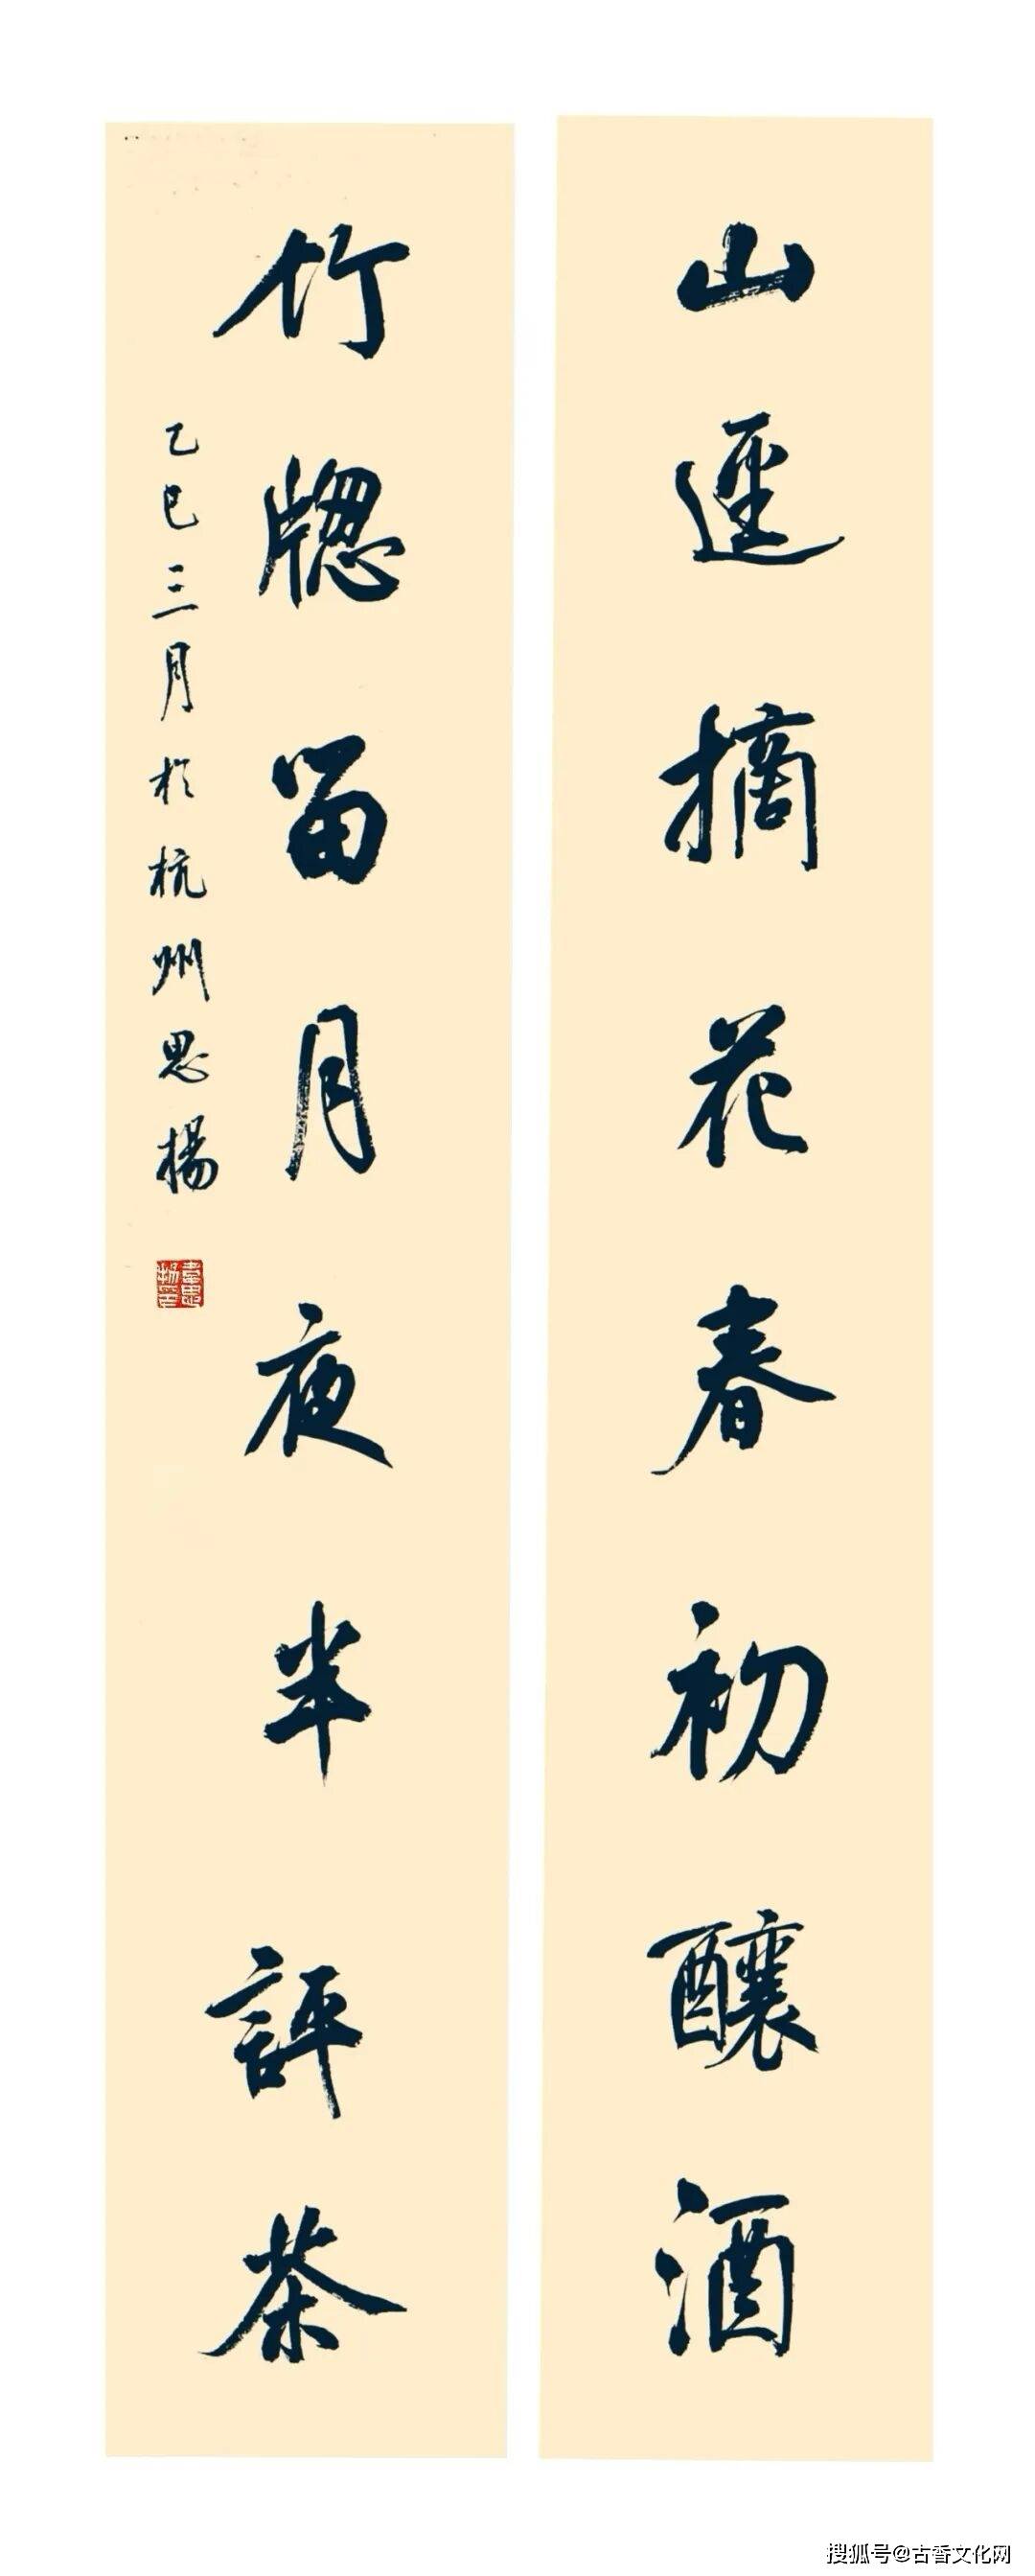 山逕摘花春初釀酒
竹牕留月夜半評茶
乙巳三月於杭州思楊
搜狐号@古香文化网